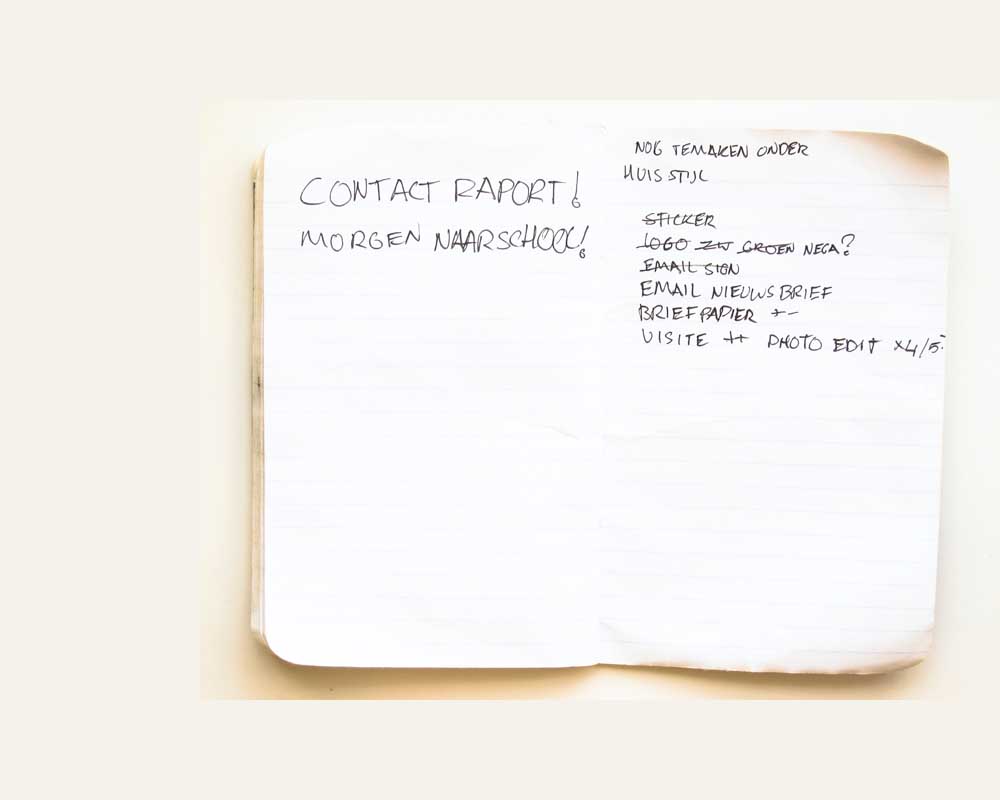 CONTACT RAPORT!
MORGEN NAARSCHOOL!
NOG TEMAKEN ONDER
HUIS STIJL
STICKER
LOGO ZW GROEN NEGA?
EMAIL SIGN
EMAIL NIEUWSBRIEF
BRIEFPAPIER +-
VISITE ++ PHOTO EDIT x4/5